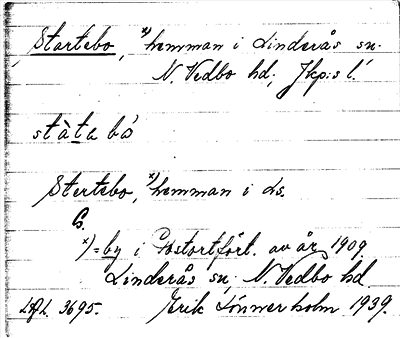 Startebo, x) hemman i Linderås sn.
N. Vedbo hd; Jkp:s l.
stàta bó
Stertebo, x) hemman i Ls.
G.
x) = by i Postortfört. av år 1909.
Linderås sn, N. Vedbo hd.
LAL. 3695. Erik Lönnerholm 1939.